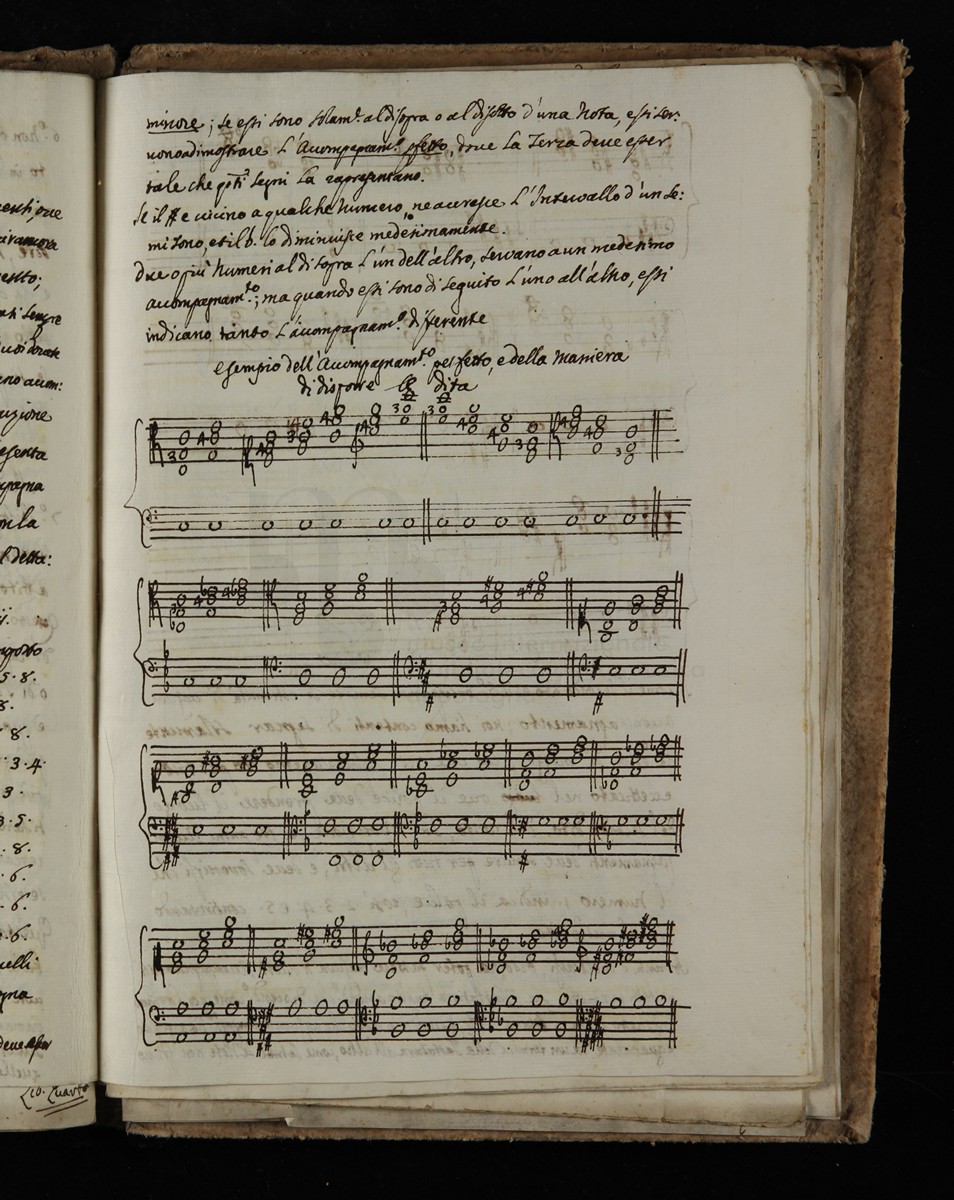 minore; se essi sono solam.e al disopra o al disotto d'una Nota, essi ser:
vono a dimostrare L'Acompagnam.o pfetto, dove La Terza deve esser
tale che qsti segni La rapresentano.
Se il # e vicino a qualche Numero, ne accresce L'Intervallo d'un Se:
mitono, et il b. lo diminuisce medesimamente.
due o più Numeri al di sopra L'un dell'altro, servano a un medesimo
acompagnam.to; ma quando essi sono di seguito L'uno all'altro, essi
indicano tanto L'acompagnam.o differente
esempio dell'Acompagnam.to perfetto, e della Maniera
di disporre Le dita
ento;
5.8.
8.
8.
3.4
3.
3.5.
8.
6.
6.
6.
uelli